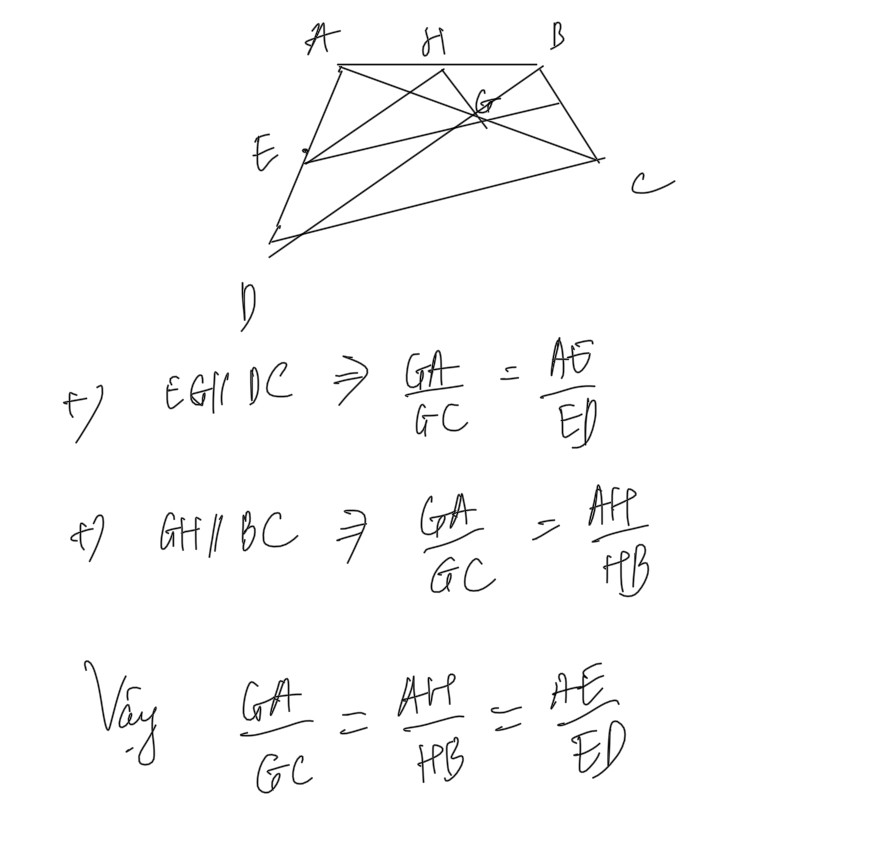 A H B
G
E
C
D
+) EG // DC ⇒ GA/GC = AE/ED
+) GH // BC ⇒ GA/GC = AH/HB
Vậy GA/GC = AH/HB = AE/ED